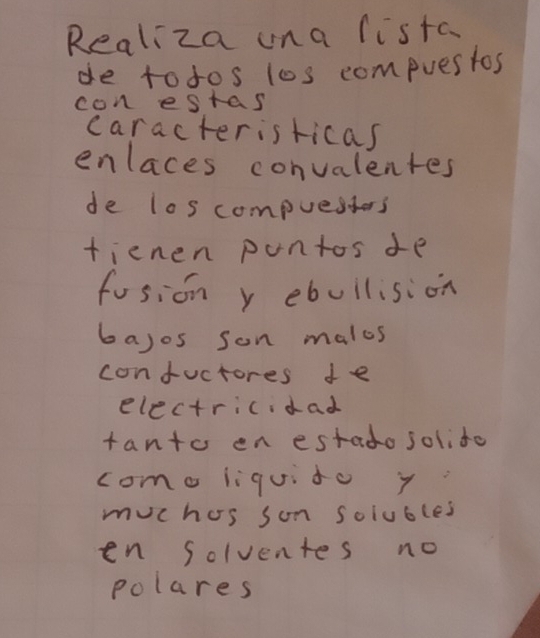 Realiza una lista
de todos los compuestos
con estas
caracteristicas
enlaces convalentes
de los compuestos
tienen puntos de
fusión y ebullisión
bajos son malos
conductores de
electricidad
tanto en estado solido
como liquido y
muchos son solubles
en solventes no
polares